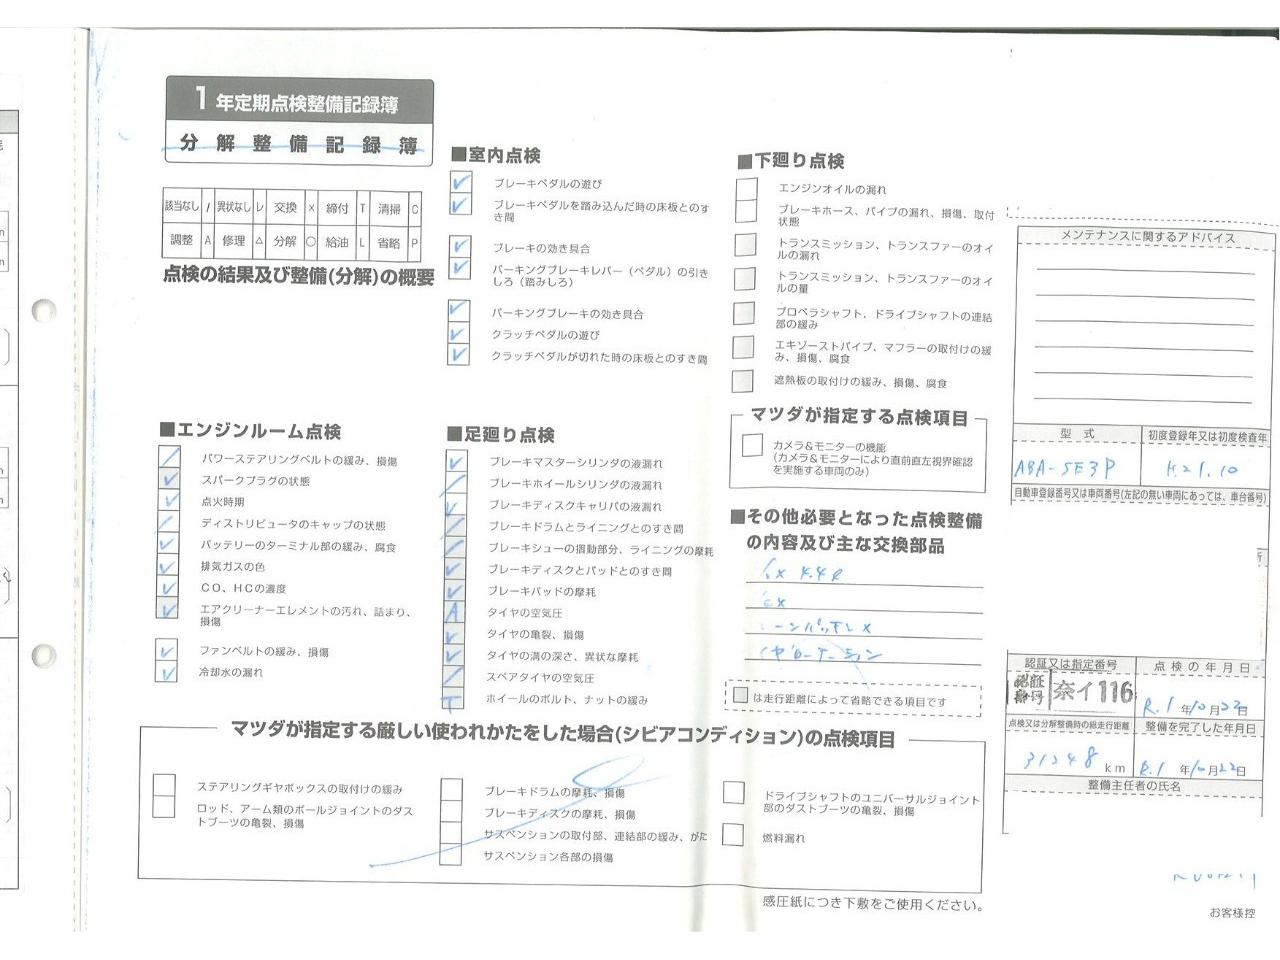 1年定期点検整備記録簿
分解整備記録簿
該当なし / 異状なし レ 交換 × 締付 T 清掃 C
調整 A 修理 △ 分解 ○ 給油 L 省略 P
点検の結果及び整備(分解)の概要
■室内点検
ブレーキペダルの遊び
ブレーキペダルを踏み込んだ時の床板とのす
き間
ブレーキの効き具合
パーキングブレーキレバー（ペダル）の引き
しろ（踏みしろ）
パーキングブレーキの効き具合
クラッチペダルの遊び
クラッチペダルが切れた時の床板とのすき間
■エンジンルーム点検
パワーステアリングベルトの緩み、損傷
スパークプラグの状態
点火時期
ディストリビュータのキャップの状態
バッテリーのターミナル部の緩み、腐食
排気ガスの色
CO、HCの濃度
エアクリーナーエレメントの汚れ、詰まり、
損傷
ファンベルトの緩み、損傷
冷却水の漏れ
■足廻り点検
ブレーキマスターシリンダの液漏れ
ブレーキホイールシリンダの液漏れ
ブレーキディスクキャリパの液漏れ
ブレーキドラムとライニングとのすき間
ブレーキシューの摺動部分、ライニングの摩耗
ブレーキディスクとパッドとのすき間
ブレーキパッドの摩耗
A タイヤの空気圧
タイヤの亀裂、損傷
タイヤの溝の深さ、異状な摩耗
スペアタイヤの空気圧
T ホイールのボルト、ナットの緩み
■下廻り点検
エンジンオイルの漏れ
ブレーキホース、パイプの漏れ、損傷、取付
状態
トランスミッション、トランスファーのオイ
ルの漏れ
トランスミッション、トランスファーのオイ
ルの量
プロペラシャフト、ドライブシャフトの連結
部の緩み
エキゾーストパイプ、マフラーの取付けの緩
み、損傷、腐食
遮熱板の取付けの緩み、損傷、腐食
マツダが指定する点検項目
カメラ＆モニターの機能
(カメラ＆モニターにより直前直左視界確認
を実施する車両のみ)
■その他必要となった点検整備
の内容及び主な交換部品
4.4ℓ
ローテーション
は走行距離によって省略できる項目です
メンテナンスに関するアドバイス
型 式 初度登録年又は初度検査年
ABA-SE3P H21.10
自動車登録番号又は車両番号(左記の無い車両にあっては、車台番号)
認証又は指定番号 点検の年月日
認証番号 奈イ116 R.1年10月22日
点検又は分解整備時の総走行距離 整備を完了した年月日
31248km R.1年10月22日
整備主任者の氏名
マツダが指定する厳しい使われかたをした場合(シビアコンディション)の点検項目
ステアリングギヤボックスの取付けの緩み
ロッド、アーム類のボールジョイントのダス
トブーツの亀裂、損傷
ブレーキドラムの摩耗、損傷
ブレーキディスクの摩耗、損傷
サスペンションの取付部、連結部の緩み、がた
サスペンション各部の損傷
ドライブシャフトのユニバーサルジョイント
部のダストブーツの亀裂、損傷
燃料漏れ
感圧紙につき下敷をご使用ください。
お客様控